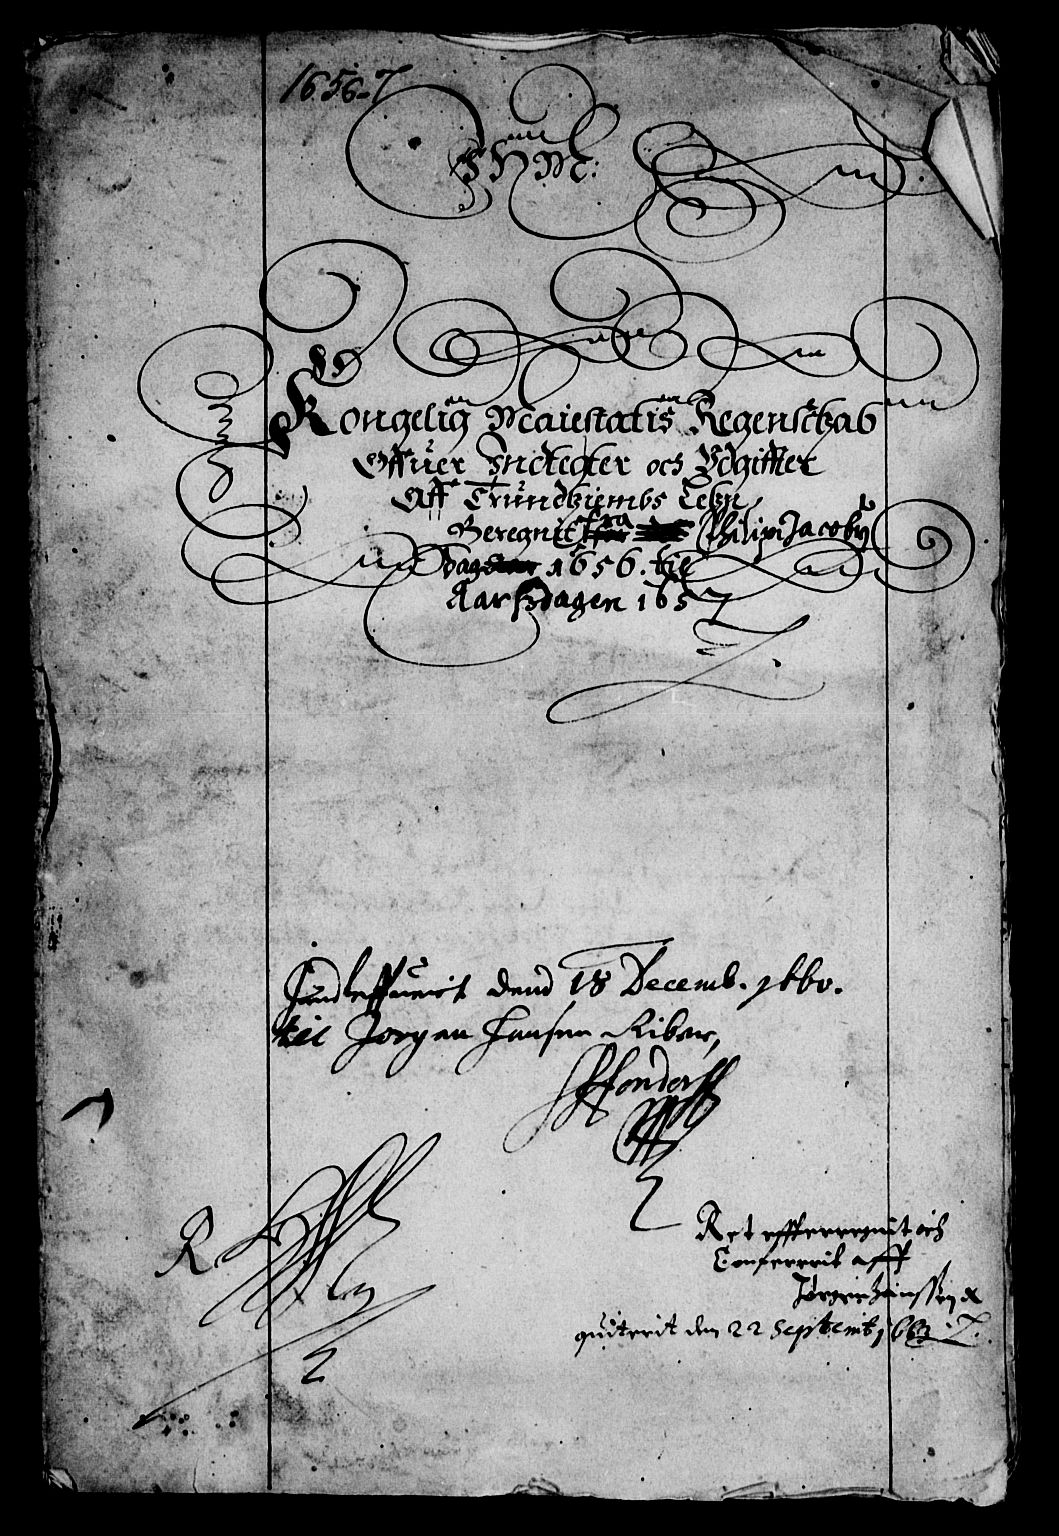 1656-7
J H M:
Kongelig Maiestatis Regenschab
Offuer Indtegter och Vdgiffter
Aff Trundhiembs Lehn
Beregnit fra Philipi Jacoby
dag 1656. til
Aarsdagen 1657
Indleffuerit dend 18 Decemb. 1660.
til Jørgen Hansen Riber,
R
Ret effterregnit och
Confererit aff
Jørgen Hanssen R
quiterit den 22 Septemb 1663.